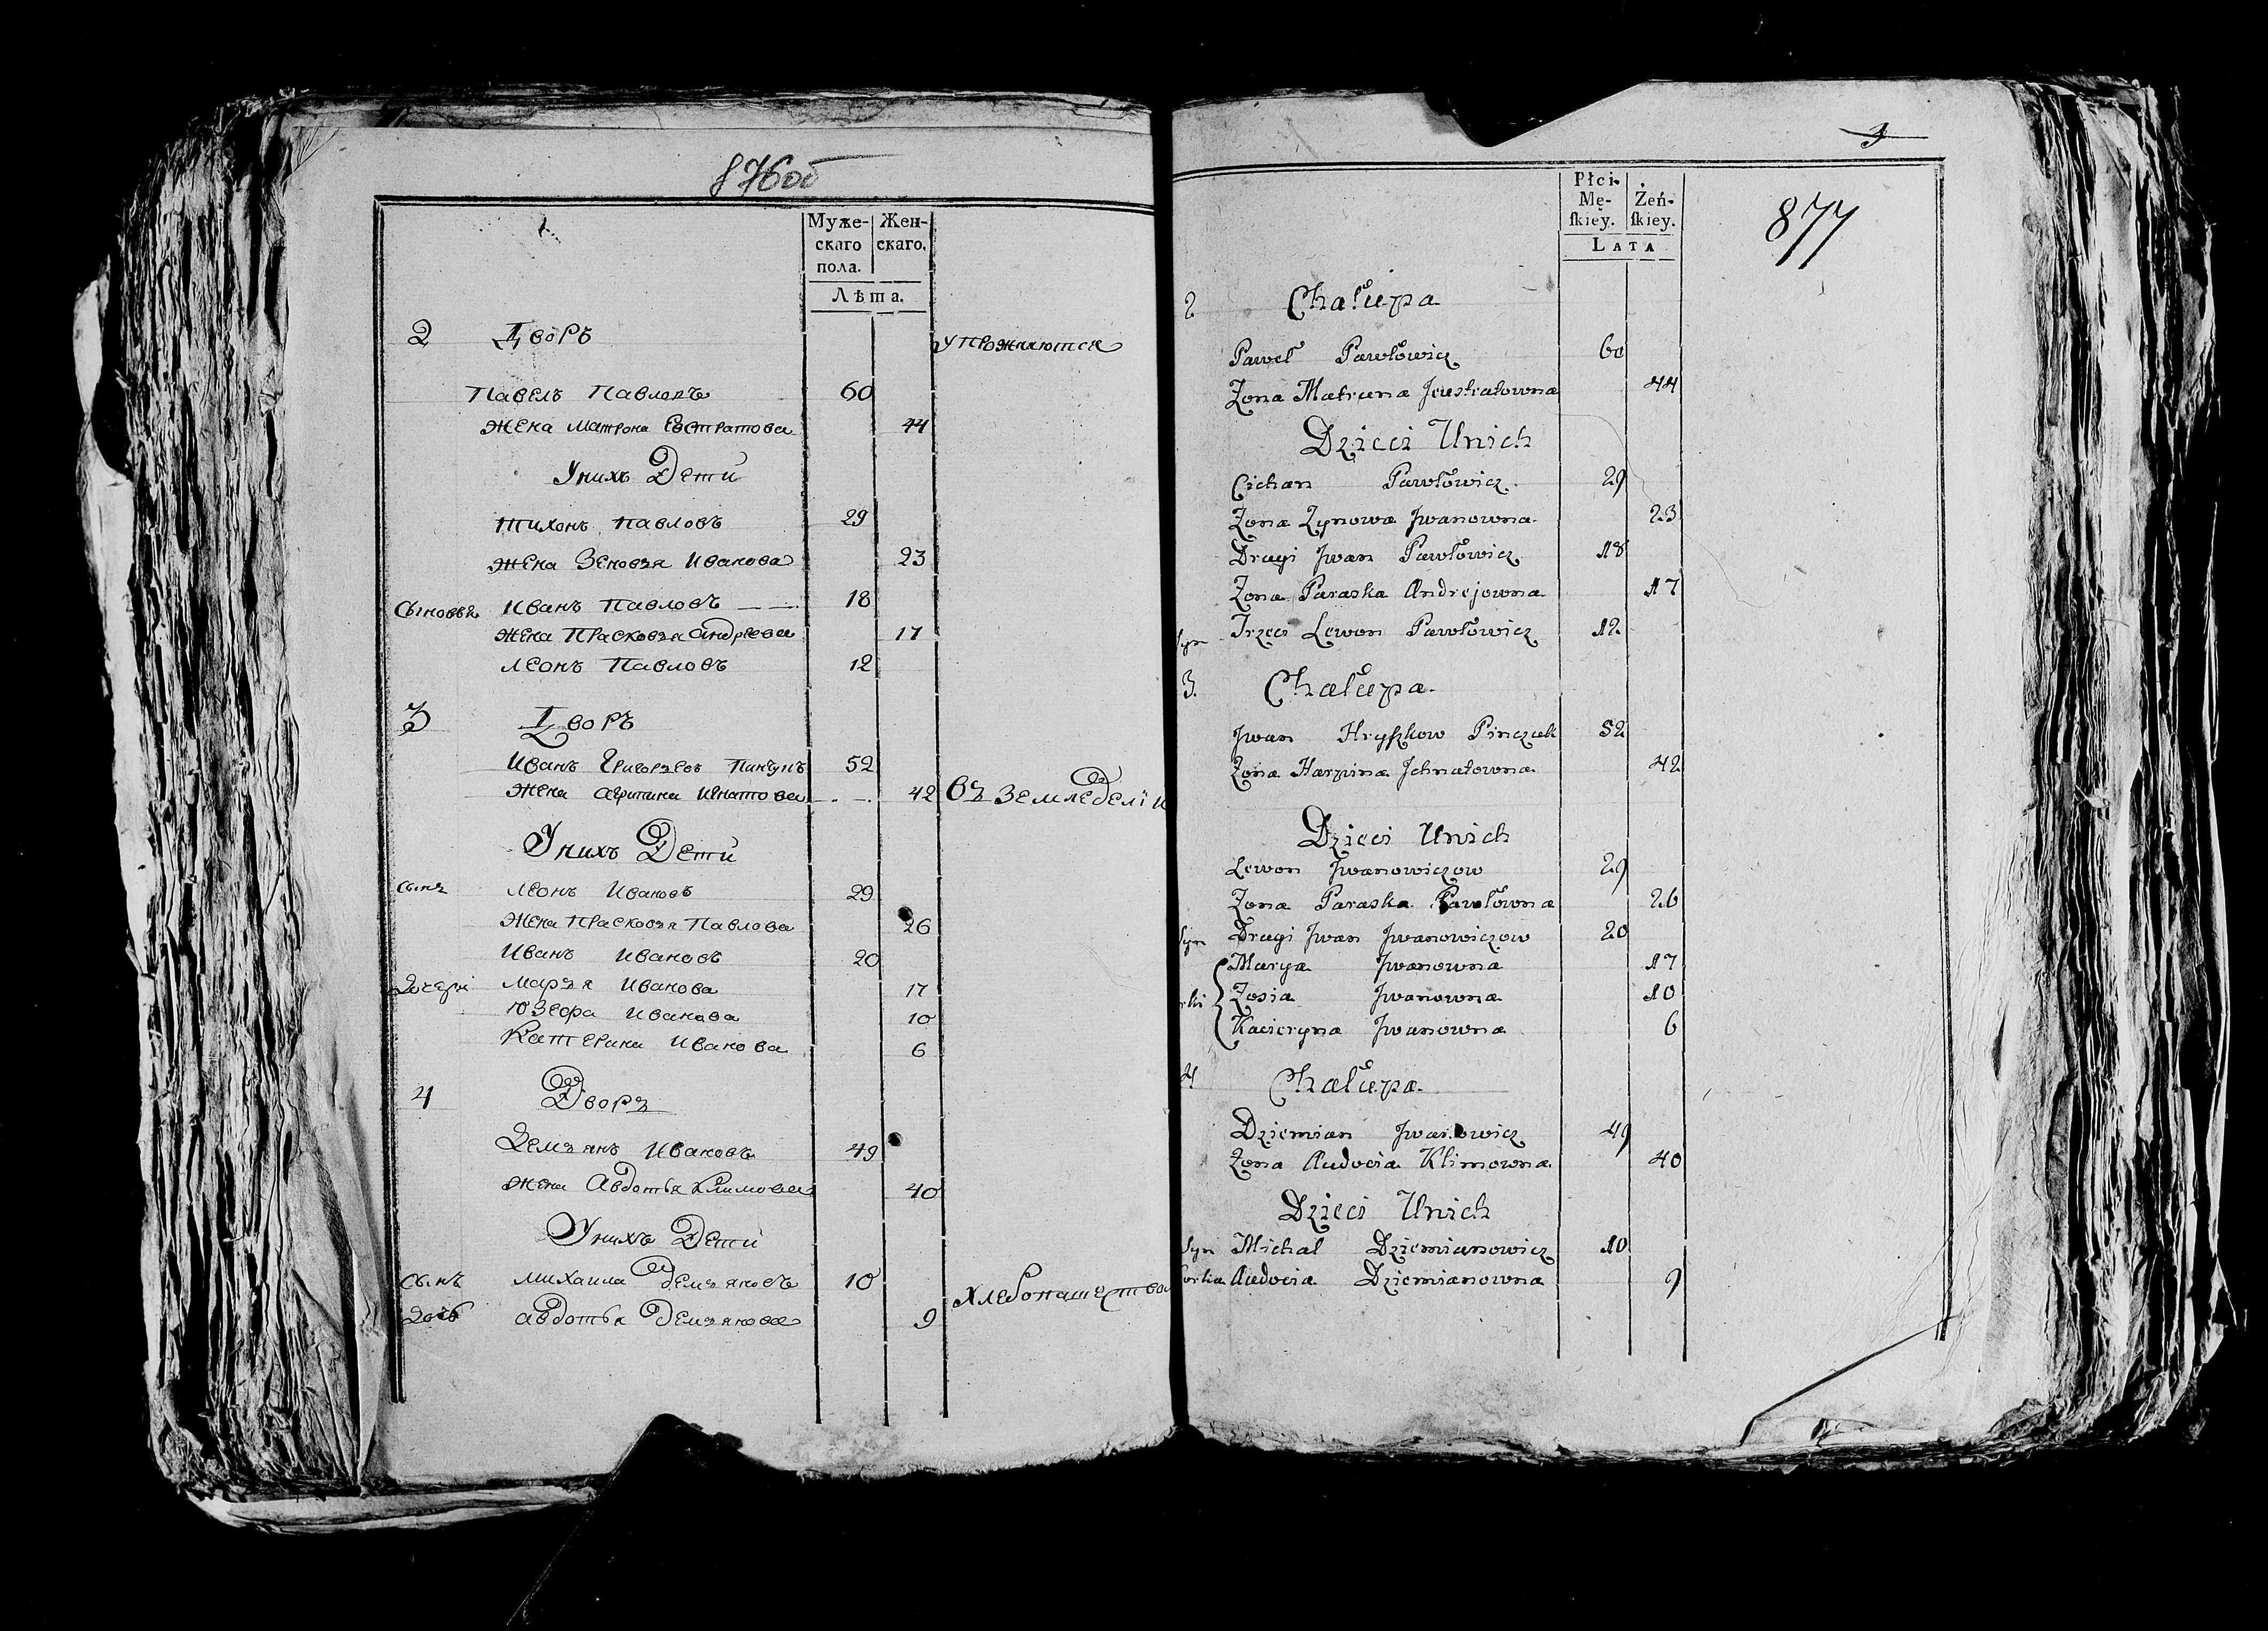 876об
Муже- Жен-
скаго скаго,
пола.
Лѣта.
2 Дворъ упрожняются
Павелъ Павловъ 60
жена Матрона Евстратова 44
Унихъ Дети
Тихонъ Павловъ 29
жена Зеновъя Иванова 23
Сыновья Иванъ Павловъ 18
жена Прасковъя Андреева 17
Леонъ Павловъ 12
3 Дворъ
Иванъ Григорьевъ Пинчукъ 52
жена Агрипина Игнатова 42 Въ Земледелiи
Унихъ Дети
сынъ Леонъ Ивановъ 29
жена Прасковъя Павлова 26
Иванъ Ивановъ 20
дочери Маръя Иванова 17
Юзефа Иванова 10
Катерина Иванова 6
4 Дворъ
Демъянъ Ивановъ 49
жена Авдотья Климова 40
Унихъ Дети
сынъ Михаила Демъяновъ 10
Хлебопашества
дочь Авдотья Демъянова 9
3
Płci-
Mę- Żeń-
ſkiey. ſkiey.
LATA
877
2 Chałupa
Paweł Pawłowicz 60
Zona Matruna Jeustratowna 44
Dzieci Unich
Cichan Pawłowicz 29
Zona Zynowa Jwanowna 23
Drugi Jwan Pawłowicz 18
Zona Paraska Andrejowna 17
Syn Trzeci Lewon Pawłowicz 12
3. Chałupa.
Jwan Hryſzkow Pinczuk 52
Zona Harpina Jhnatowna 42
Dzieci Unich
Lewon Jwanowiczow 29
Zona Paraska Pawłowna 26
Syn Drugi Jwan Jwanowiczow 20
Marya Jwanowna 17
rki Zosia Jwanowna 10
Kacieryna Jwanowna 6
4 Chałupa.
Dziemian Jwanowicz 49
Zona Audocia Klimowna 40
Dzieci Unich
Syn Michał Dziemianowicz 10
Corka Audocia Dziemianowna 9